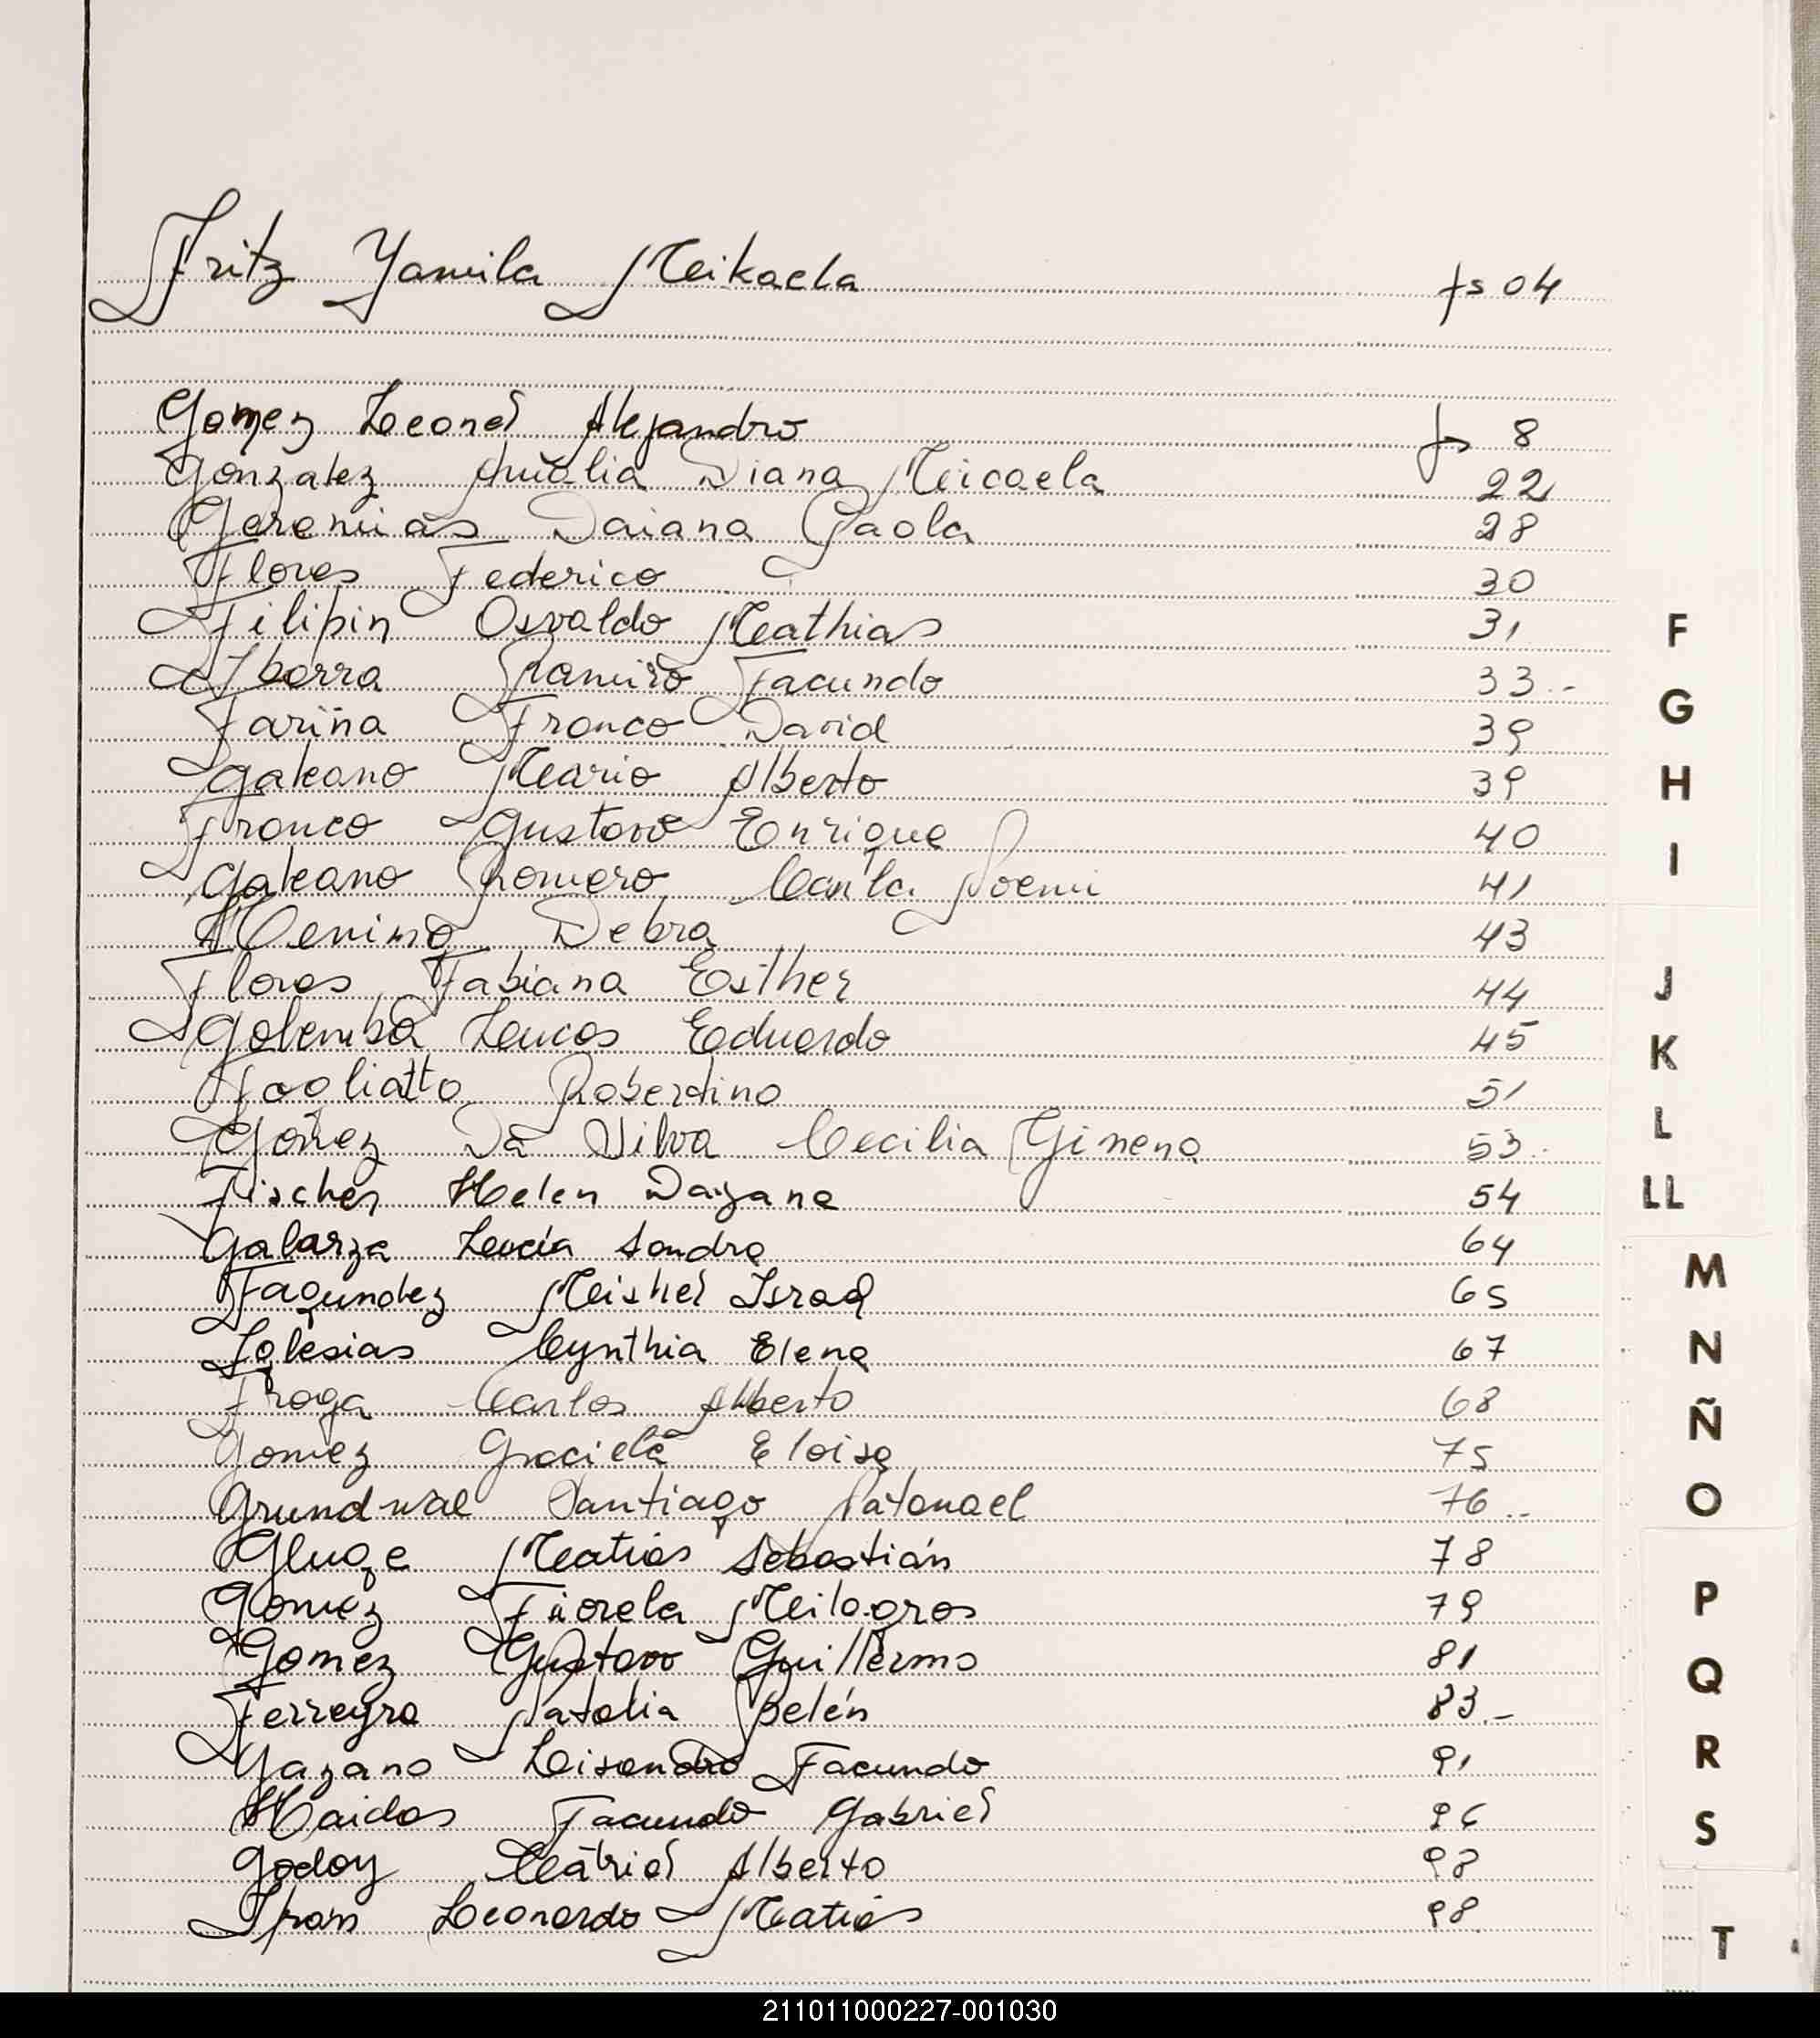 Fritz Yamila Mikaela fs 04
Gomez Leonel Alejandro fs 8
Gonzalez Analia Diana Micaela 22
Geremias Daiana Paola 28
Flores Federico 30
Filipin Osvaldo Mathias 31
Ibarra Ramiro Facundo 33.-
Fariña Franco David 39
Galeano Mario Alberto 39
Franco Gustavo Enrique 40
Galeano Romero Carla Noemi 41
Debra 43
Flores Fabiana Esther 44
Golemba Lucas Eduardo 45
Fogliatto Robertino 51
Goñez Da Silva Cecilia Gimena 53.-
Fischer Helen Dayana 54
Galarza Lucía Sandra 64
Fagundez Mishel Israel 65
Iglesias Cynthia Elena 67
Fraga Carlos Alberto 68
Gomez Graciela Eloisa 75
Grundwal Santiago Natanael 76..
Gluge Matias Sebastián 78
Gomez Fiorela Milagros 79
Gomez Gustavo Guillermo 81
Ferreyra Natalia Belén 83.-
Gazano Lisandro Facundo 91
Haidas Facundo Gabriel 96
Godoy Alberto 98
Leonardo Matias 98
F
G
H
I
J
K
L
LL
M
N
Ñ
O
P
Q
R
S
T
211011000227-001030